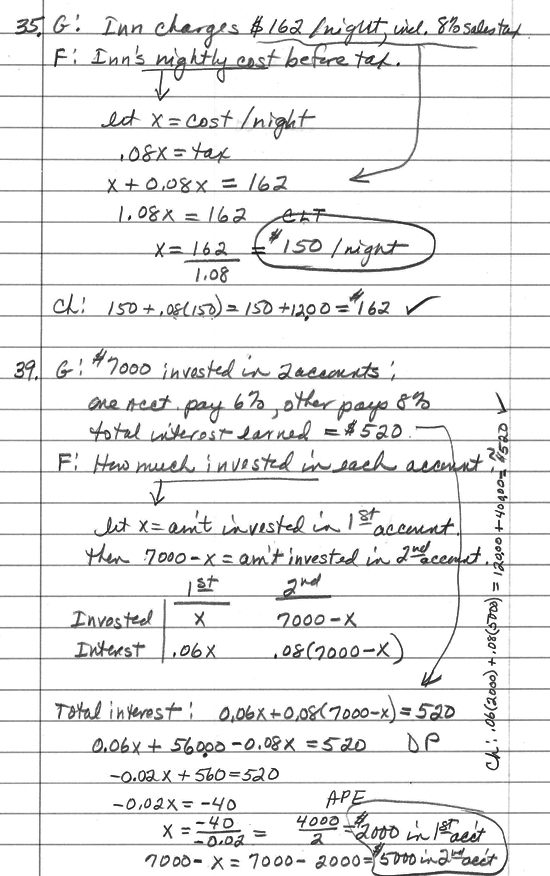 35. G: Inn charges $162 /night, incl. 8% sales tax
F: Inn's nightly cost before tax.
let x = cost /night
.08x = tax
x + 0.08x = 162
1.08x = 162 CLT
x = 162/1.08 = $150 /night
Ch: 150 + .08(150) = 150 + 12.00 = $162 ✓
39. G: $7000 invested in 2 accounts;
one acct. pay 6%, other pays 8%
total interest earned = $520.
F: How much invested in each account?
let x = am't invested in 1st account.
then 7000 - x = am't invested in 2nd account.
1st 2nd
Invested x 7000 - x
Interest .06x .08(7000 - x)
Total interest: 0.06x + 0.08(7000 - x) = 520
0.06x + 560.00 - 0.08x = 520 DP
-0.02x + 560 = 520
-0.02x = -40 APE
x = -40/-0.02 = 4000/2 = $2000 in 1st acct
7000 - x = 7000 - 2000 = $5000 in 2nd acct
Ch: .06(2000) + .08(5000) = 120.00 + 400.00 = $520 ✓